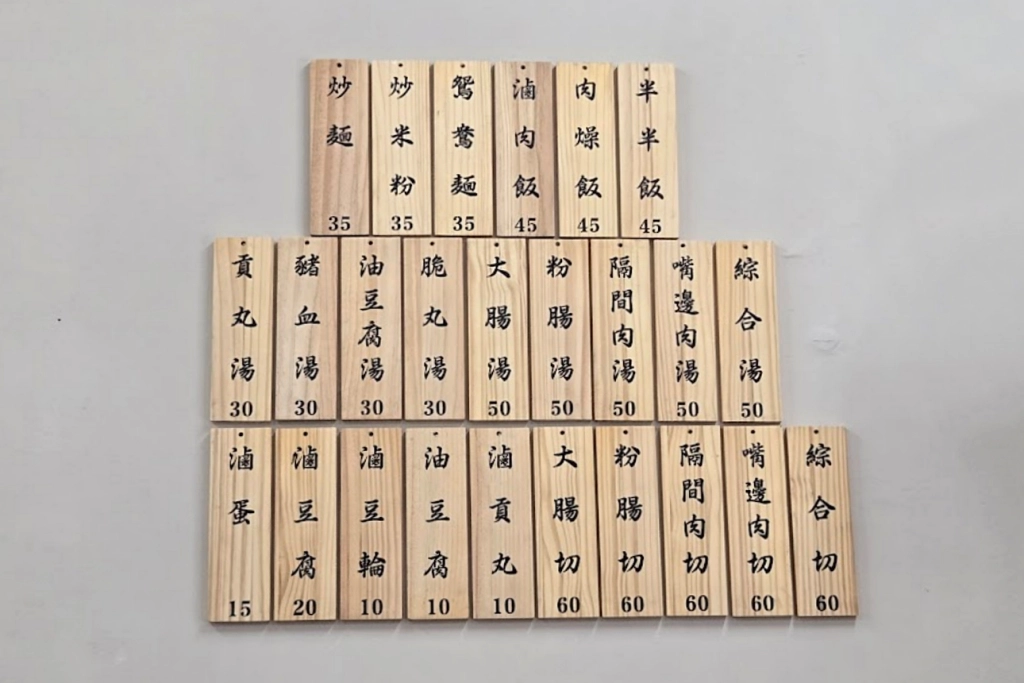 炒麵 35
炒米粉 35
鴛鴦麵 35
滷肉飯 45
肉燥飯 45
半半飯 45
貢丸湯 30
豬血湯 30
油豆腐湯 30
脆丸湯 30
大腸湯 50
粉腸湯 50
隔間肉湯 50
嘴邊肉湯 50
綜合湯 50
滷蛋 15
滷豆腐 20
滷豆輪 10
油豆腐 10
滷貢丸 10
大腸切 60
粉腸切 60
隔間肉切 60
嘴邊肉切 60
綜合切 60